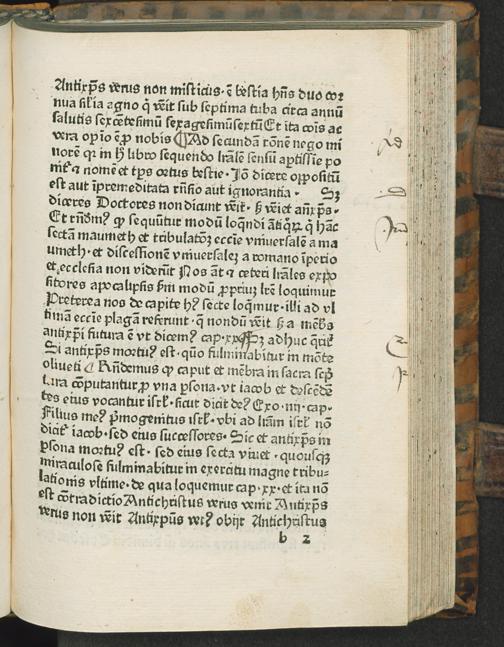 Antixp̄s verus non misticus · ē bestia hñs duo cor
nua sil̄ia agno q̄ vẽit sub septima tuba circa annū
salutis sexcẽtesimū sexagesimūsextū Et ita cōis ac
vera opīo ē ꝓ nobis ¶ Ad secundā rōnē nego mi
norē qr in hͦ libro sequendo lr̄alē sensū aptissie po
nit̄ & nomē et tp̄s ortus bestie · Jō dicere oppositū
est aut īpremeditata rñsio aut ignorantia · Sꝫ
diceres Doctores non dicunt vẽit · sꝫ vẽiet añxp̄s ·
Et rñdm̄ꝰ ꝙ sequūtur modū loq̄ndi ātiq̄ꝝ q̄ hāc
sectā maumeth et tribulatōꝫ eccīe vniuersalē a ma
umeth · et discessionē vniuersalē a romano īperio
et ecclesia non viderūt Nos āt & ceteri lr̄ales expo
sitores apocalipsis ẜm modū ꝓprīū lr̄e loquimur
Preterea nos de capite hꝰ secte loq̄mur · illi ad vl
timam eccīe plagā referunt · q̄ nondū vẽit sꝫ a mēbs
antixp̄i futura ē vt dicemꝰ cap · xx Sꝫ adhuc q̄rit̄
Si antixp̄s mortuꝰ est · quō fulminabitur in mōte
oliueti ¶ Rñdemus ꝙ caput et mēbra in sacra scp̄
tura cōputantur ꝓ vna ꝑsona · vt iacob et descedē
tes eius vocantur isrl̄ · sicut dicit deꝰ Exo · iiij · cap ·
Filius meꝰ p̄mogenitus isrl̄ · vbi ad lr̄am isrl̄ nō
dicit̄ iacob · sed eius successores · Sic et antixp̄s in
ꝑsona mortuꝰ est · sed eius secta viuet · quousqꝫ
miraculose fulminabitur in exercitu magne tribu-
lationis vltime · de qua loquemur cap · xx · et ita nō
est cōtradictio Antichristus verus venit Antixp̄s
verus non vẽit Antixp̄us verꝰ obijt Antichristus
b 2